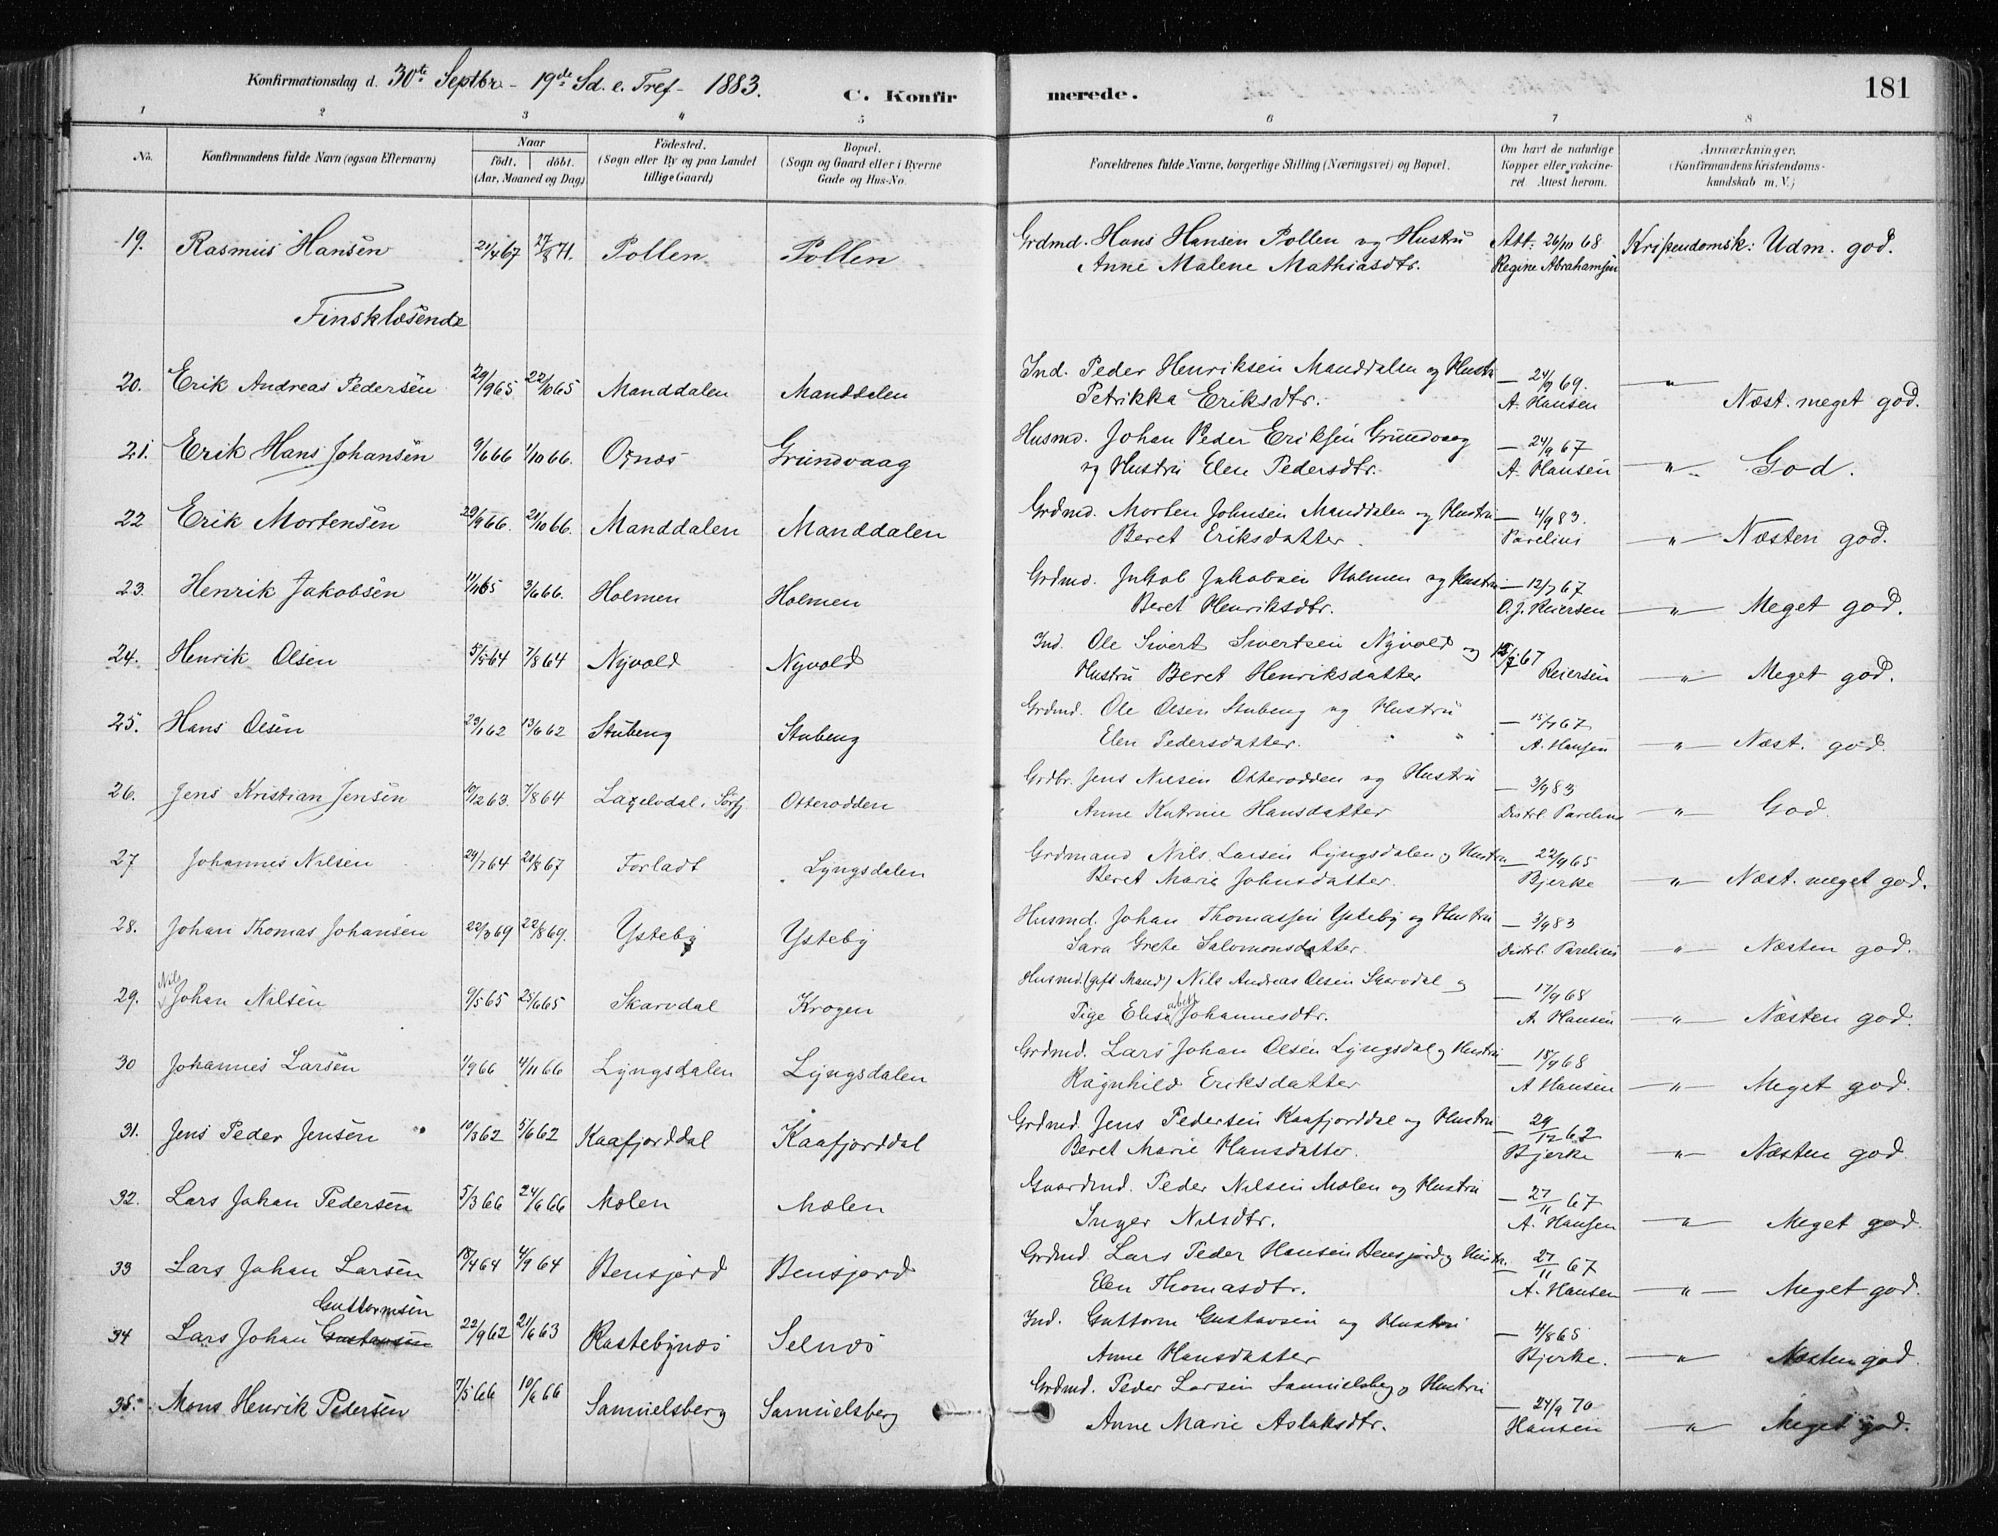 Konfirmationsdag d. 30te Septbr - 19de Sd. e. Tref - 1883.
C. Konfirmerede.
181
1 2 3 4 5 6 7 8
No.
Konfirmandens fulde Navn (ogsaa Efternavn)
Naar
födt. döbt.
(Aar, Maaned og Dag)
Födested.
(Sogn eller By og paa Landet
tillige Gaard)
Bopæl.
(Sogn og Gaard eller i Byerne
Gade og Hus-No.
Forældrenes fulde Navne, borgerlige Stilling (Næringsvei) og Bopæl.
Om havt de naturlige
Kopper eller vakcine-
ret. Attest herom.
Anmærkninger.
(Konfirmandens Kristendoms-
kundskab m. V.)
19. Rasmus Hansen 21/4 67 27/8 71. Pollen Pollen Grdmd. Hans Hansen Pollen og Hustru Att: 26/10 68 Kristendomsk: Udm. god.
Anne Malene Mathiasdtr. Regine Abrahamsen
Finsklæsende
20. Erik Andreas Pedersen 29/9 65 22/10 65 Manddalen Manddalen Ind. Peder Henriksen Manddalen og Hustr — 24/9 69. — " —
Petrikka Eriksdtr. A. Hansen Næst. meget god.
21. Erik Hans Johansen 9/6 66 1/10 66. Oxnæs Grundvaag Husmd. Johan Peder Eriksen Grundvaag — 24/9 67
og Hustru Elen Pedersdtr. A. Hansen — " — God.
22 Erik Mortensen 20/9 66. 21/10 66. Manddalen Manddalen Grdmd. Morten Johnsen Manddalen og Hustru — 4/9 83.
Beret Eriksdatter. Parelius — " — Næsten god.
23. Henrik Jakobsen 11/11 65 3/6 66. Holmen Holmen Grdmd. Jakob Jakobsen Holmen og Hustru — 12/7 67
Beret Henriksdtr. O. J. Reiersen — " — Meget god.
24. Henrik Olsen 5/5 64 7/8 64 Nyvold Nyvold Ind. Ole Sivert Sivertsen Nyvold og 12/7 67
Hustru Beret Henriksdatter Reiersen — " — Meget god.
25. Hans Olsen 29/1 62 13/6 62 Stubeng Stubeng Grdmd. Ole Olsen Stubeng og Hustru — 15/7 67
Elen Pedersdatter. A. Hansen — " — Næst. god.
26. Jens Kristian Jensen 10/12 63. 7/8 64 Laxelvdal i Sörfj Otterodden Grdbr. Jens Nilsen Otterodden og Hustru — 3/9 83
Anne Katrine Hansdatter Distrl. Parelius — " — God.
27 Johannes Nilsen 24/7 64 21/8 67 Forladt Lyngsdalen Grdmand Nils Larsen Lyngsdalen og Hustru — 22/9 65
Beret Marie Johnsdatter. Bjerke — " — Næst. meget god.
28. Johan Thomas Johansen 22/3 69 22/8 69. Ysteby Ysteby Husmd. Johan Thomassen Ysteby og Hustru — 3/9 83
Sara Grete Salomonsdatter. Distrl. Parelius — " — Næsten god.
29. Nils Johan Nilsen 9/5 65 25/6 65 Skarvdal Krogen Husmd. (gift Mand) Nils Andreas Olsen Skarvdal og — 17/9 68
Pige Elisabeth Johannesdtr. A Hansen — " — Næsten god.
30 Johannes Larsen 1/9 66 4/11 66 Lyngsdalen Lyngsdalen Grdmd. Lars Johan Olsen Lyngsdal og Hustru — 18/9 68
Ragnhild Eriksdatter A Hansen — " — Meget god.
31. Jens Peder Jensen 10/3 62 5/6 62 Kaafjorddal Kaafjorddal Grdmd. Jens Pedersen Kaafjorddal og Hustru — 29/12 62
Beret Marie Hansdatter. Bjerke — " — Næsten god.
32. Lars Johan Pedersen 5/3 66 24/6 66 Molen Molen Gaardmd. Peder Nilsen Molen og Hustru — 27/11 67
Inger Nilsdtr. A. Hansen — " — Meget god.
33 Lars Johan Larsen 18/4 64 4/9 64 Bensjord Bensjord Grdmd. Lars Peder Hansen Bensjord og Hustr. — 27/11 67
Elen Thomasdtr. A. Hansen — " — Meget god.
Guttormsen
34 Lars Johan Gustavsen 22/9 62 21/6 63 Rastebynæs Selnæs Ind. Guttorm Gustavsen og Hustru — 4/8 65
Anne Hansdatter Bjerke. — " — Næsten god.
35. Mons Henrik Pedersen 7/5 66 10/6 66 Samuelsberg Samuelsberg Grdmd. Peder Larsen Samuelsberg og Hustru — 24/9 70
Anne Marie Aslaksdtr. Hansen — " — Meget god.